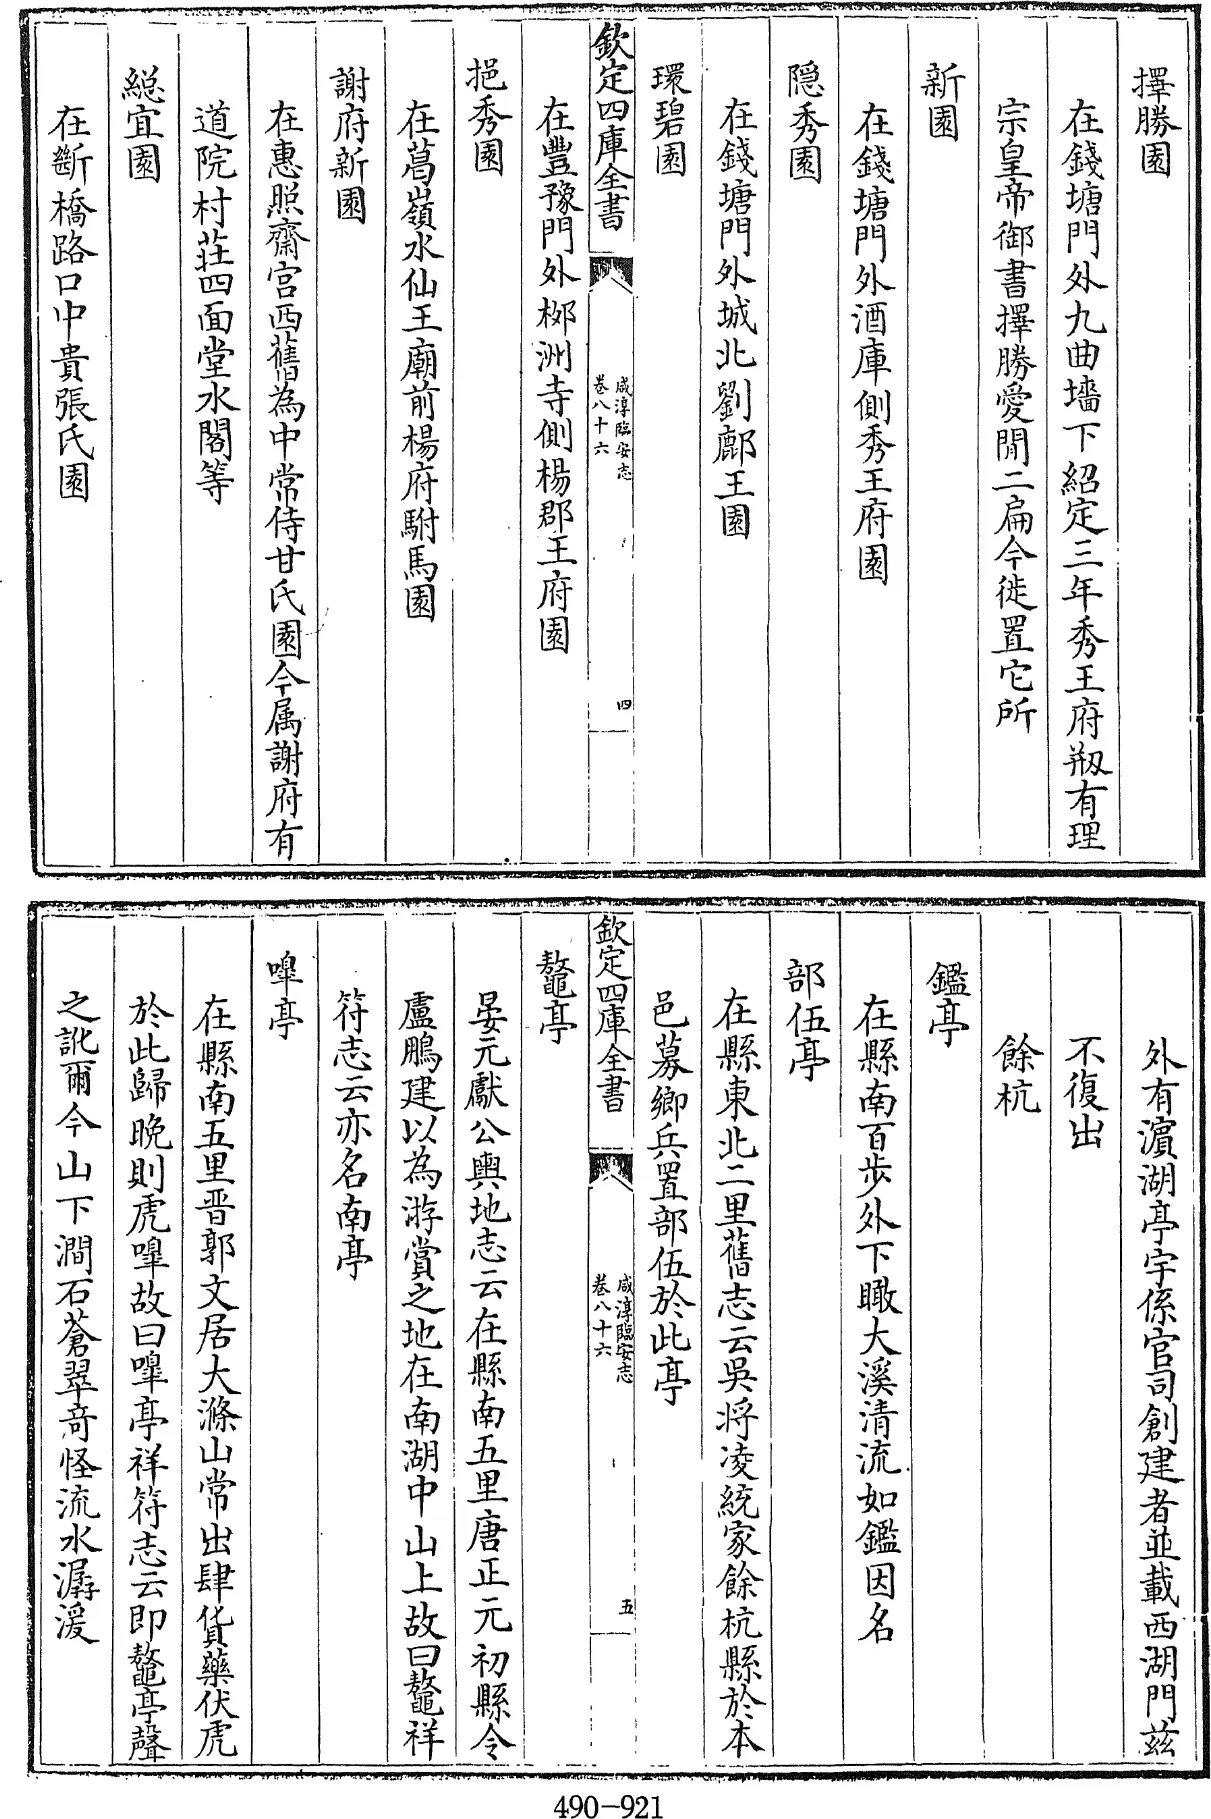 擇勝園
在錢塘門外九曲墻下紹定三年秀王府剏有理
宗皇帝御書擇勝愛閒二扁今徙置它所
新園
在錢塘門外酒庫側秀王府園
隱秀園
在錢塘門外城北劉鄜王園
環碧園
欽定四庫全書
咸淳臨安志
卷八十六
四
在豐豫門外栁洲寺側楊郡王府園
挹秀園
在葛嶺水仙王廟前楊府駙馬園
謝府新園
在惠照齋宫西舊為中常侍甘氏園今属謝府有
道院村莊四面堂水閣等
緫宜園
在斷橋路口中貴張氏園
外有濵湖亭宇係官司創建者並載西湖門兹
不復出
餘杭
鑑亭
在縣南百步外下瞰大溪清流如鑑因名
部伍亭
在縣東北二里舊志云吳將凌統家餘杭縣於本
邑募鄉兵置部伍於此亭
欽定四庫全書
咸淳臨安志
卷八十六
五
鼇亭
晏元獻公輿地志云在縣南五里唐正元初縣令
盧鵬建以為游賞之地在南湖中山上故曰鼇祥
符志云亦名南亭
嘷亭
在縣南五里晉郭文居大滌山常出肆貨藥伏虎
於此歸晚則虎嘷故曰嘷亭祥符志云即鼇亭聲
之訛爾今山下澗石蒼翠竒怪流水潺湲
490-921